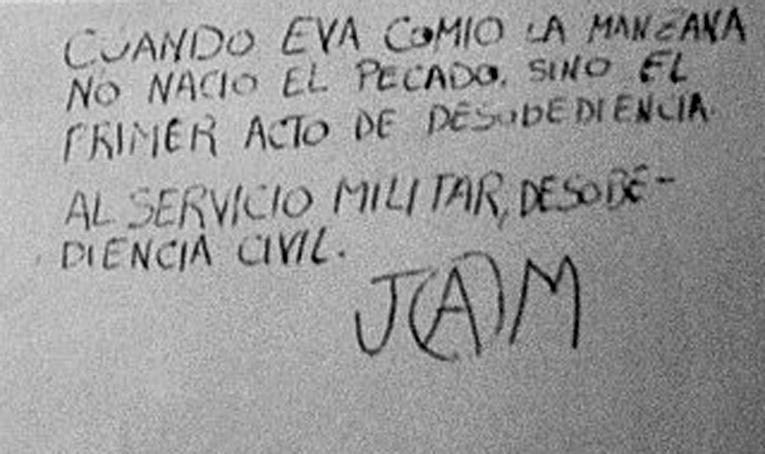 CUANDO EVA COMIO LA MANZANA
NO NACIO EL PECADO. SINO EL
PRIMER ACTO DE DESOBEDIENCIA.
AL SERVICIO MILITAR, DESOBE-
DIENCIA CIVIL.
J(A)M